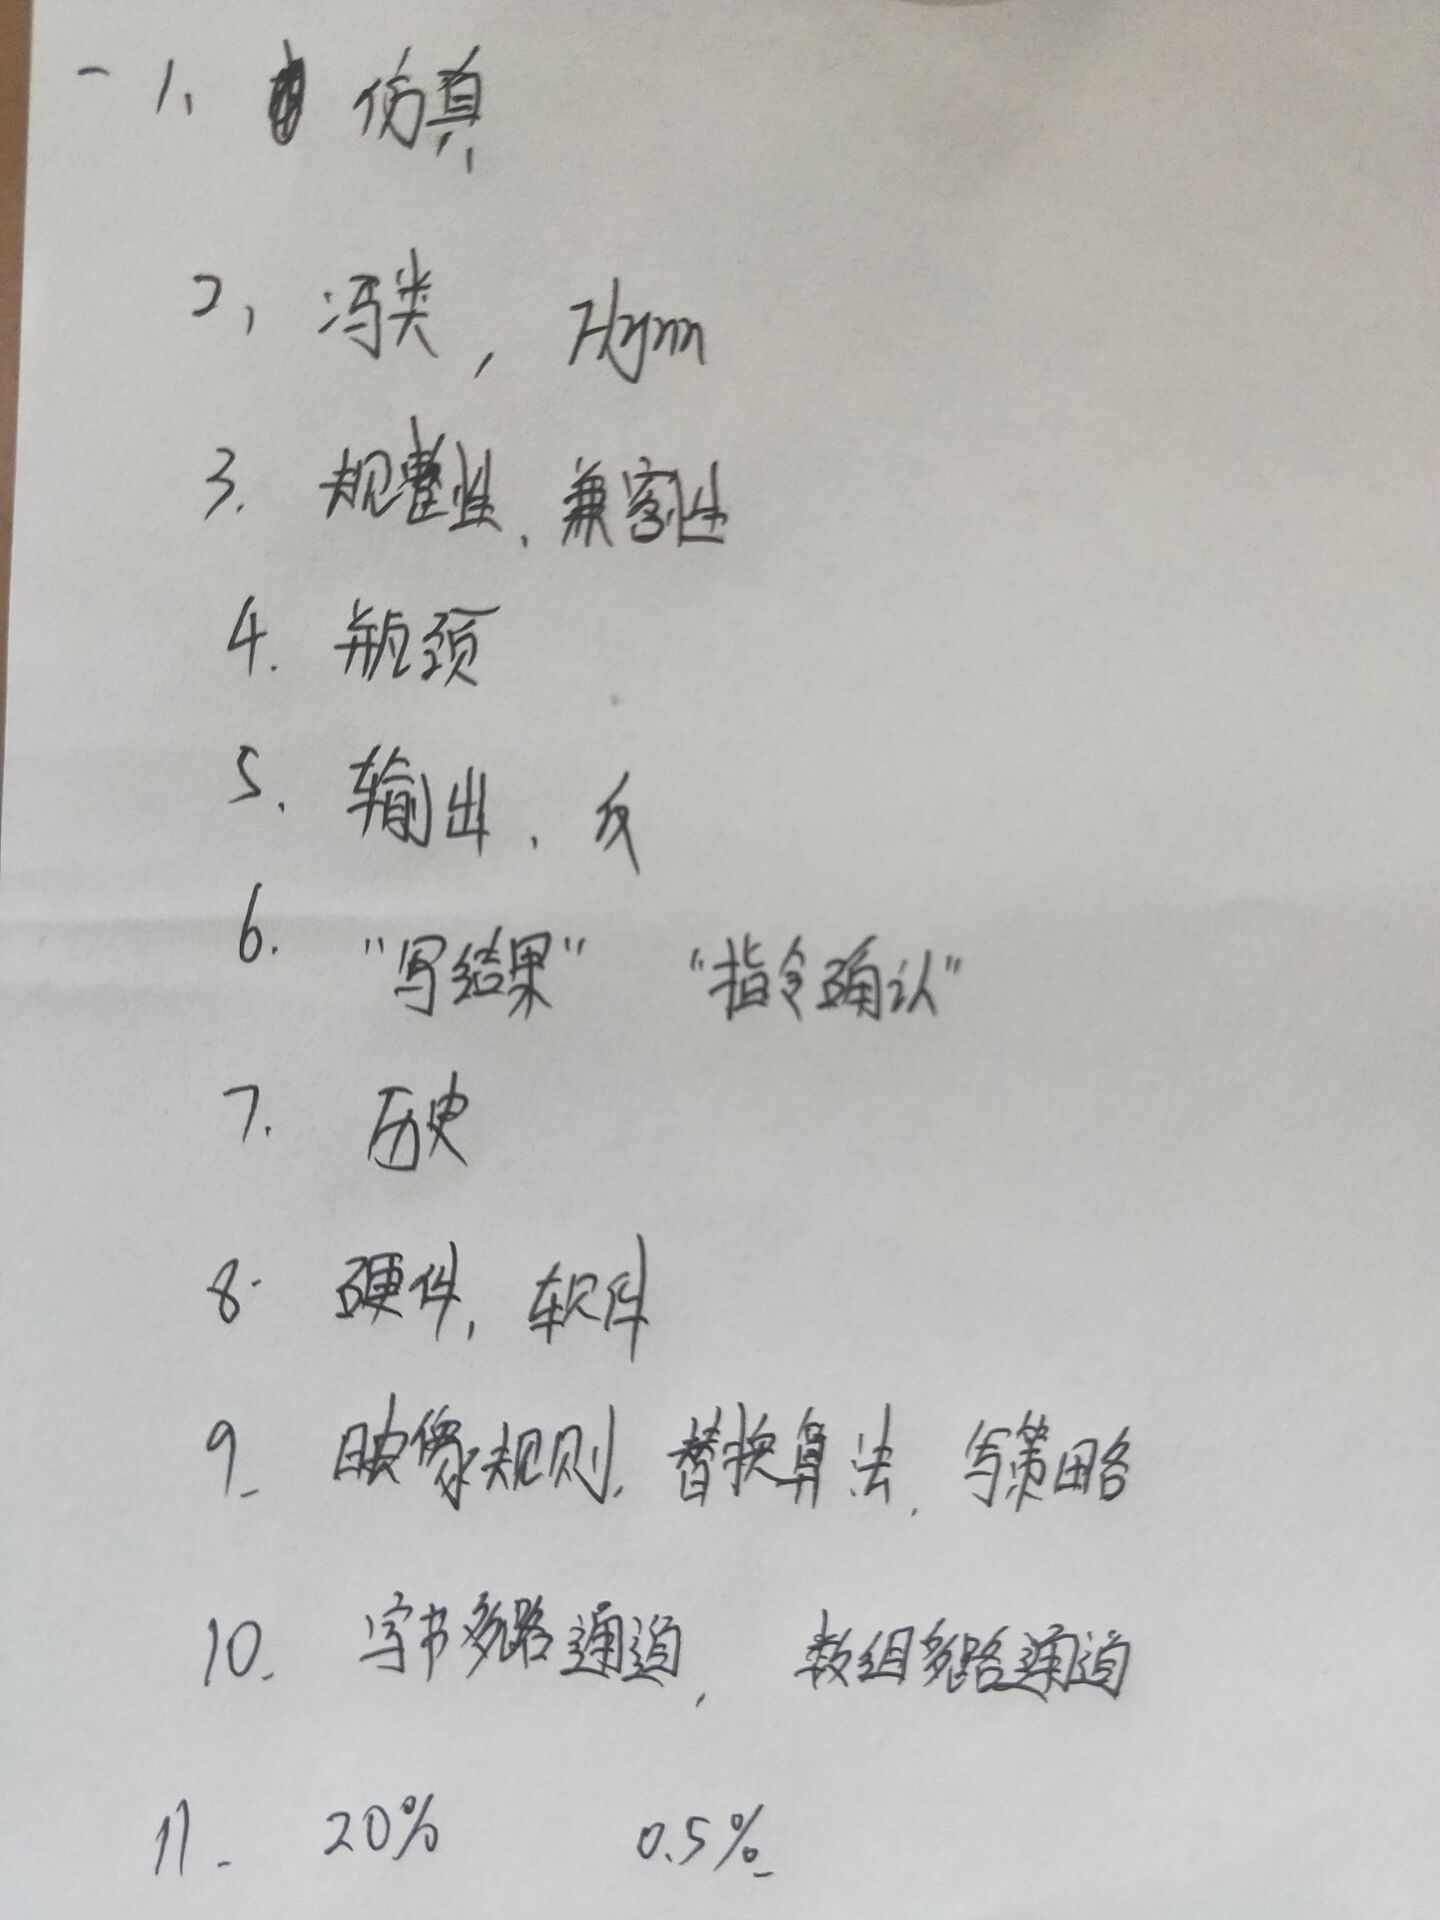 一 1、 仿真
2、 冯类， Flynn
3. 规整性、兼容性
4. 瓶颈
5. 输出、反
6. "写结果" "指令确认"
7. 历史
8. 硬件，软件
9. 映像规则、替换算法、写策略
10. 字节多路通道， 数组多路通道
11. 20% 0.5%